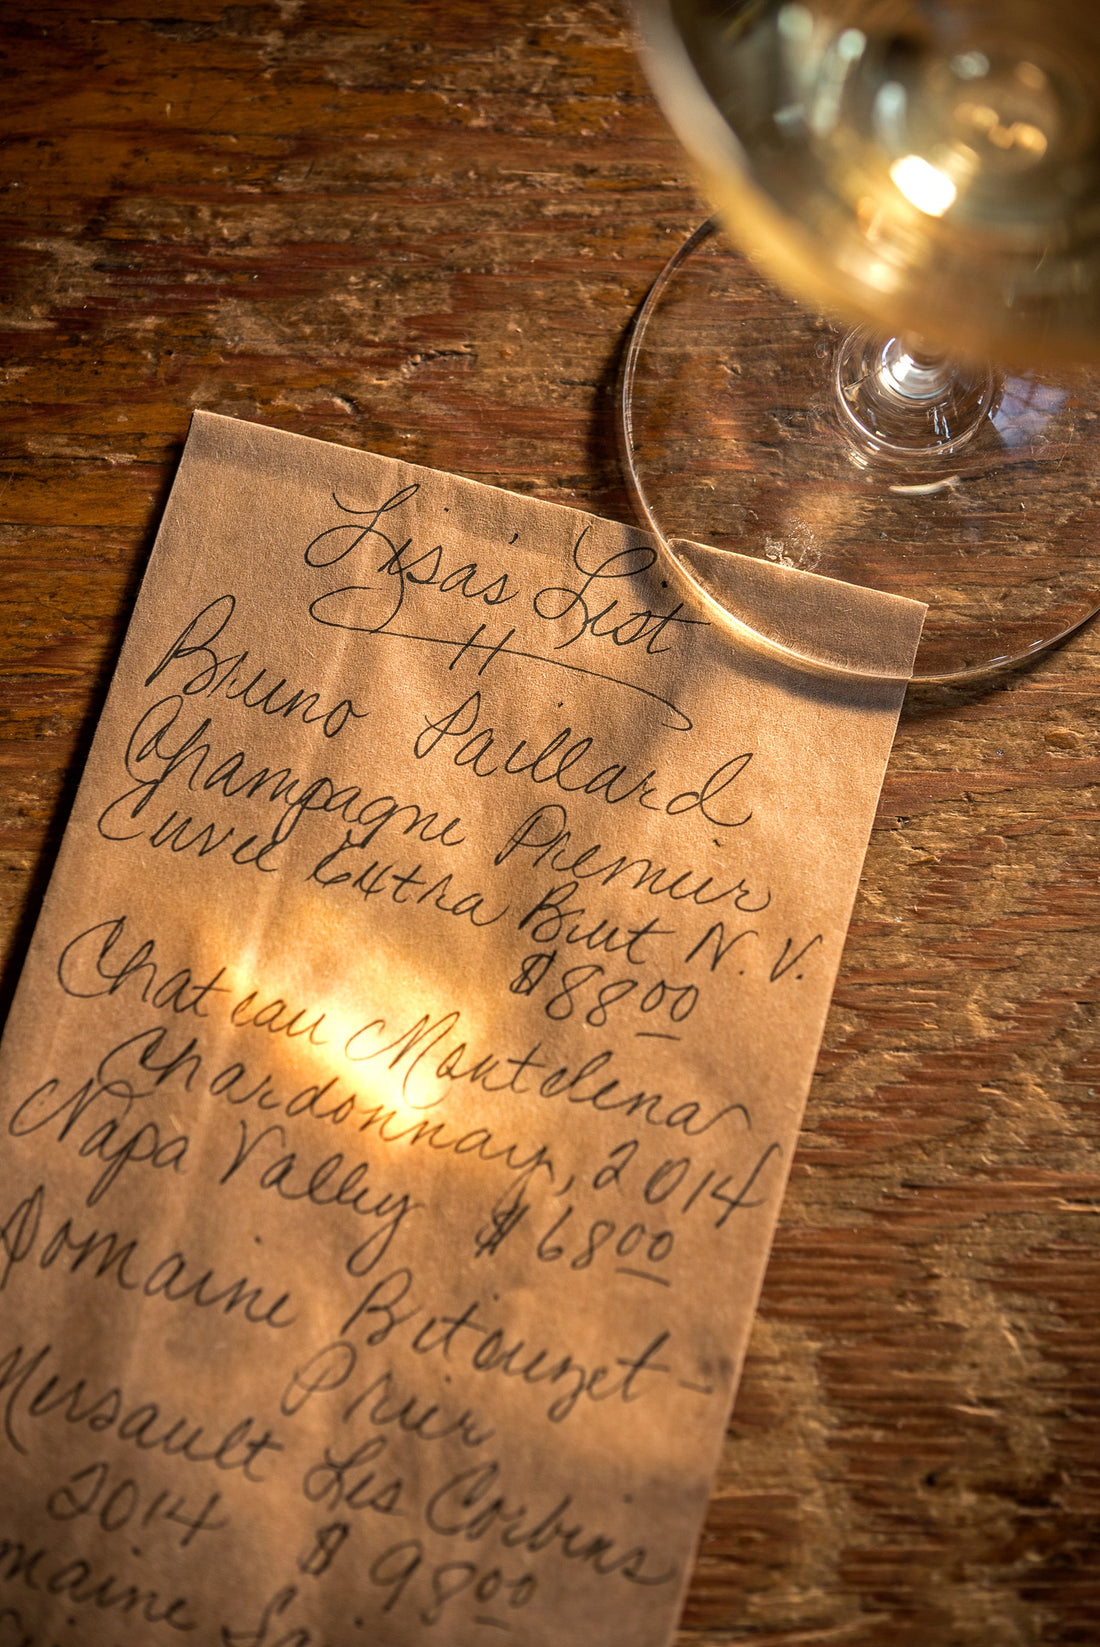 Lisa's List
Bruno Paillard
Champagne Premier
Cuvee Extra Brut N.V.
$88.00
Chateau Montelena
Chardonnay, 2014
Napa Valley $68.00
Domaine Bitouzet-
Prier
Mersault Les Corbins
2014 $98.00